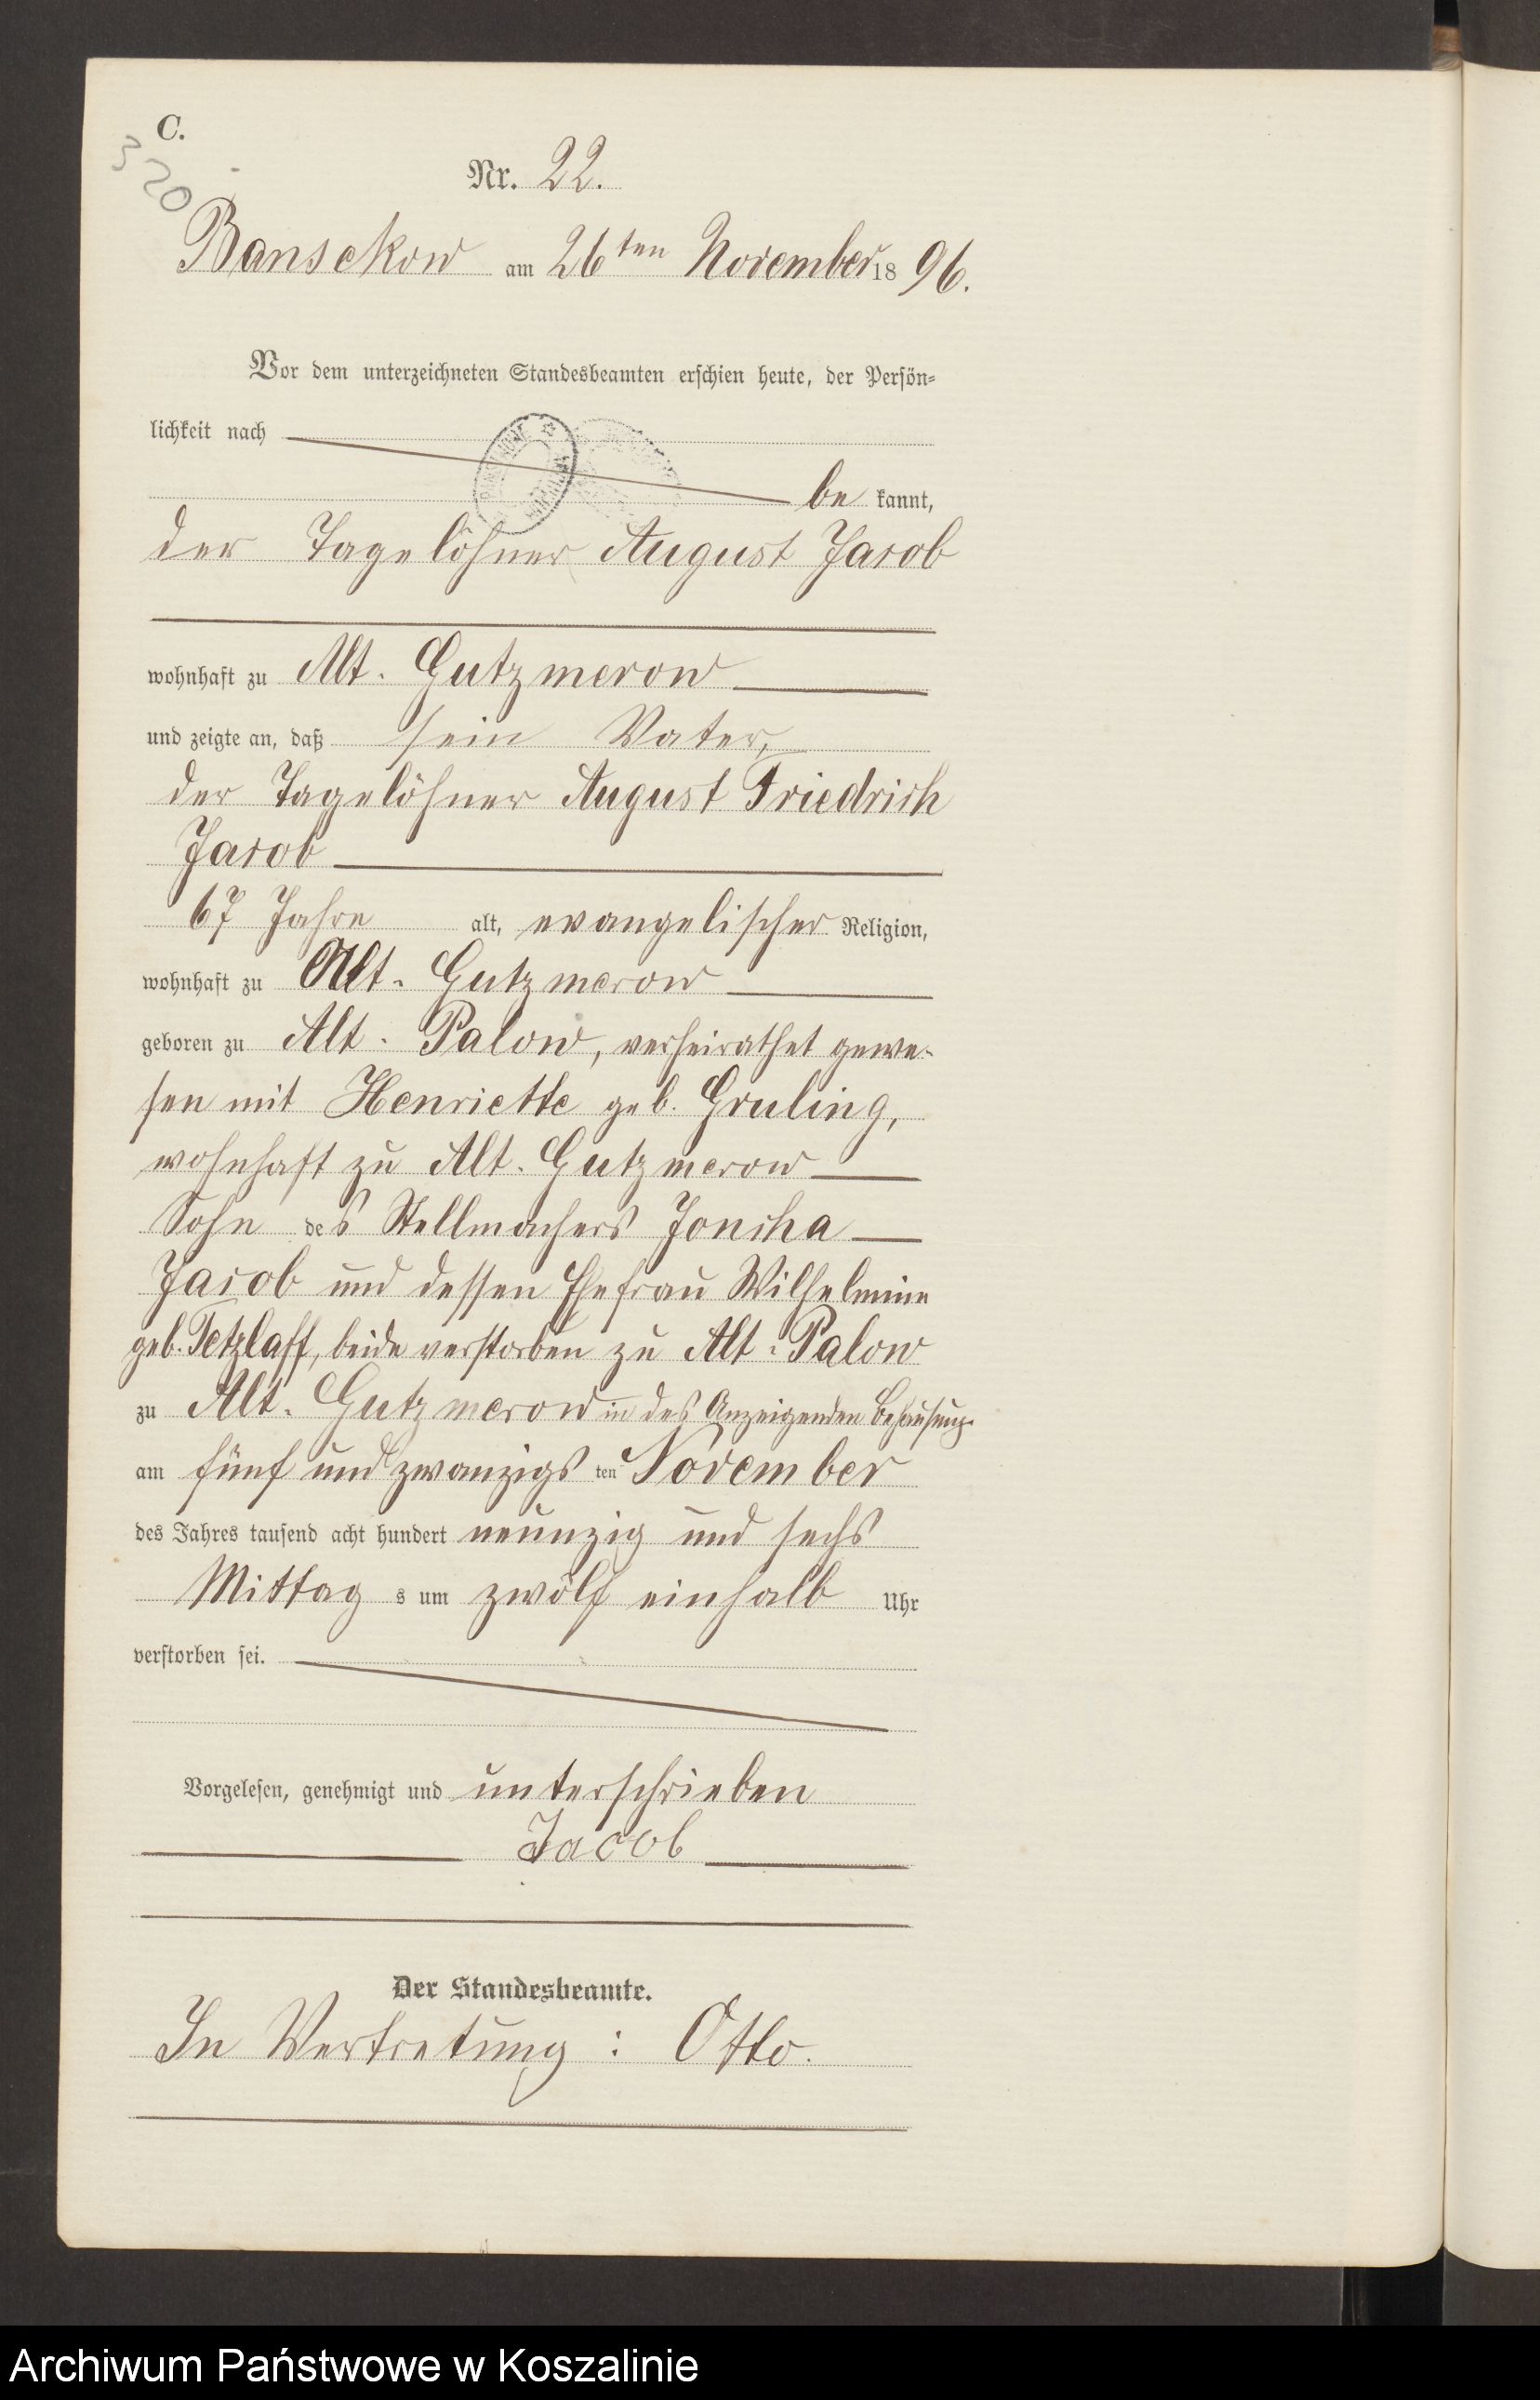 C.
320
Nr. 22.
Bansekow am 26ten November 1896.
Vor dem unterzeichneten Standesbeamten erschien heute, der Persön-
lichkeit nach
be kannt,
der Tagelöhner August Jacob
wohnhaft zu Alt. Gutzmerow
und zeigte an, daß sein Vater,
der Tagelöhner August Friedrich
Jacob
67 Jahre alt, evangelischer Religion,
wohnhaft zu Alt. Gutzmerow
geboren zu Alt. Palow, verheirathet gewe-
sen mit Henriette geb. Gruling,
wohnhaft zu Alt. Gutzmerow
Sohn des Stellmachers
Jacob und dessen Ehefrau Wilhelmine
geb. Tetzlaff, beide verstorben zu Alt. Palow
zu Alt. Gutzmerow in des Anzeigenden Behausung
am fünf und zwanzigs ten November
des Jahres tausend acht hundert neunzig und sechs
Mittag s um zwölf einhalb Uhr
verstorben sei.
Vorgelesen, genehmigt und unterschrieben
Jacob
Der Standesbeamte.
In Vertretung: Otto.
Archiwum Państwowe w Koszalinie